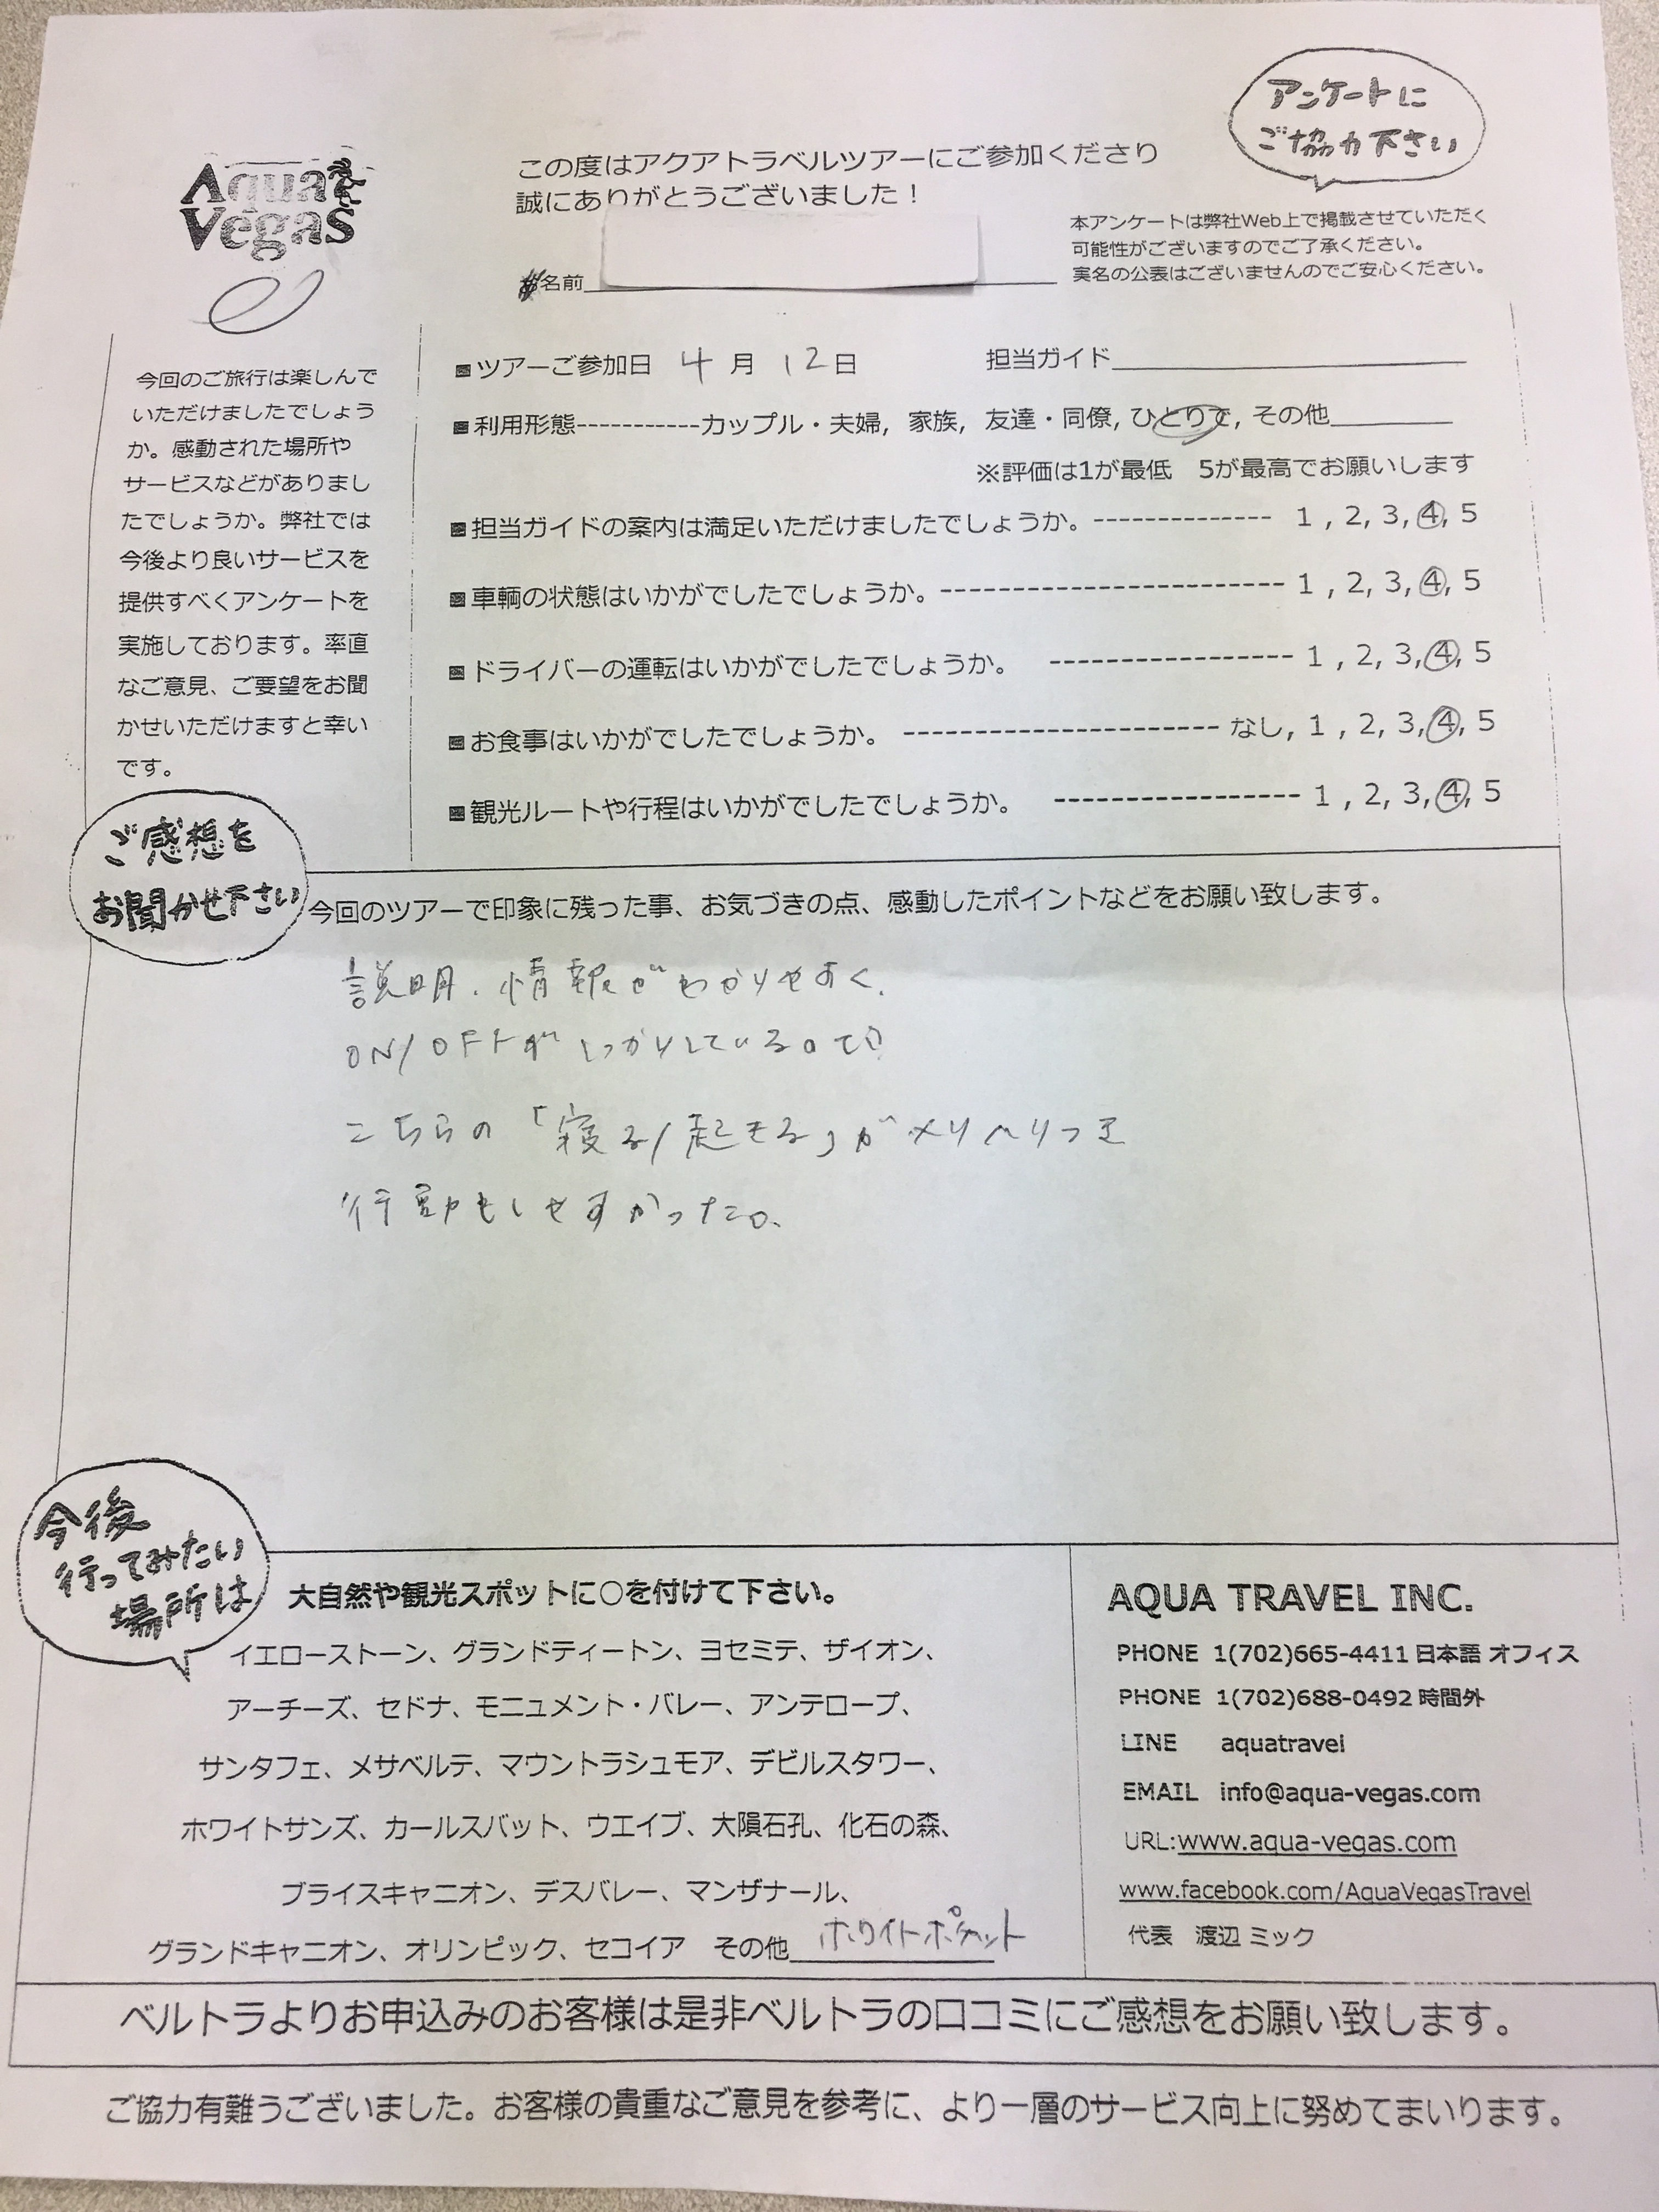 アンケートに
ご協力下さい
Aqua
Vegas
この度はアクアトラベルツアーにご参加くださり
誠にありがとうございました！
本アンケートは弊社Web上で掲載させていただく
可能性がございますのでご了承ください。
実名の公表はございませんのでご安心ください。
名前
今回のご旅行は楽しんで
いただけましたでしょう
か。感動された場所や
サービスなどがありまし
たでしょうか。弊社では
今後より良いサービスを
提供すべくアンケートを
実施しております。率直
なご意見、ご要望をお聞
かせいただけますと幸い
です。
■ツアーご参加日 4月 12日 担当ガイド
■利用形態-----------カップル・夫婦, 家族, 友達・同僚, ひとりで, その他
※評価は1が最低 5が最高でお願いします
■担当ガイドの案内は満足いただけましたでしょうか。-------------- 1 , 2, 3, ④, 5
■車輌の状態はいかがでしたでしょうか。--------------------------- 1 , 2, 3, ④, 5
■ドライバーの運転はいかがでしたでしょうか。 ------------------- 1 , 2, 3, ④, 5
■お食事はいかがでしたでしょうか。 ------------------------- なし, 1 , 2, 3, ④, 5
■観光ルートや行程はいかがでしたでしょうか。 ------------------- 1 , 2, 3, ④, 5
ご感想を
お聞かせ下さい
今回のツアーで印象に残った事、お気づきの点、感動したポイントなどをお願い致します。
説明、情報がわかりやすく、
ON/OFFがしっかりしているので
こちらの「寝る/起きる」がメリハリつき
行動もしやすかった。
今後
行ってみたい
場所は
大自然や観光スポットに○を付けて下さい。
イエローストーン、グランドティートン、ヨセミテ、ザイオン、
アーチーズ、セドナ、モニュメント・バレー、アンテロープ、
サンタフェ、メサベルテ、マウントラシュモア、デビルスタワー、
ホワイトサンズ、カールスバット、ウエイブ、大隕石孔、化石の森、
ブライスキャニオン、デスバレー、マンザナール、
グランドキャニオン、オリンピック、セコイア その他 ホワイトポケット
AQUA TRAVEL INC.
PHONE 1(702)665-4411 日本語 オフィス
PHONE 1(702)688-0492 時間外
LINE aquatravel
EMAIL info@aqua-vegas.com
URL:www.aqua-vegas.com
www.facebook.com/AquaVegasTravel
代表 渡辺 ミック
ベルトラよりお申込みのお客様は是非ベルトラの口コミにご感想をお願い致します。
ご協力有難うございました。お客様の貴重なご意見を参考に、より一層のサービス向上に努めてまいります。